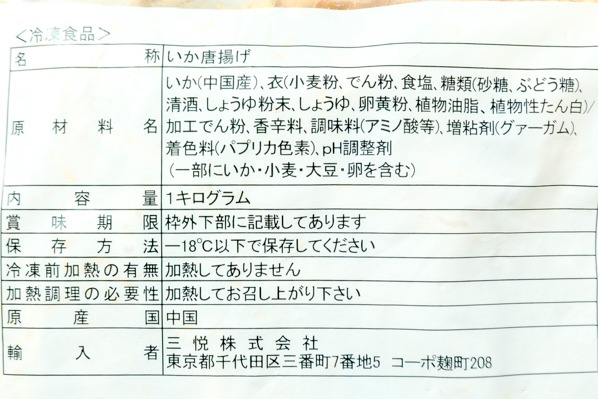 ＜冷凍食品＞
名称 いか唐揚げ
原材料名 いか(中国産)、衣(小麦粉、でん粉、食塩、糖類(砂糖、ぶどう糖)、
清酒、しょうゆ粉末、しょうゆ、卵黄粉、植物油脂、植物性たん白)/
加工でん粉、香辛料、調味料(アミノ酸等)、増粘剤(グァーガム)、
着色料(パプリカ色素)、pH調整剤
(一部にいか・小麦・大豆・卵を含む)
内容量 1キログラム
賞味期限 枠外下部に記載してあります
保存方法 −18℃以下で保存してください
冷凍前加熱の有無 加熱してありません
加熱調理の必要性 加熱してお召し上がり下さい
原産国 中国
輸入者 三悦株式会社
東京都千代田区三番町7番地5 コーポ麹町208